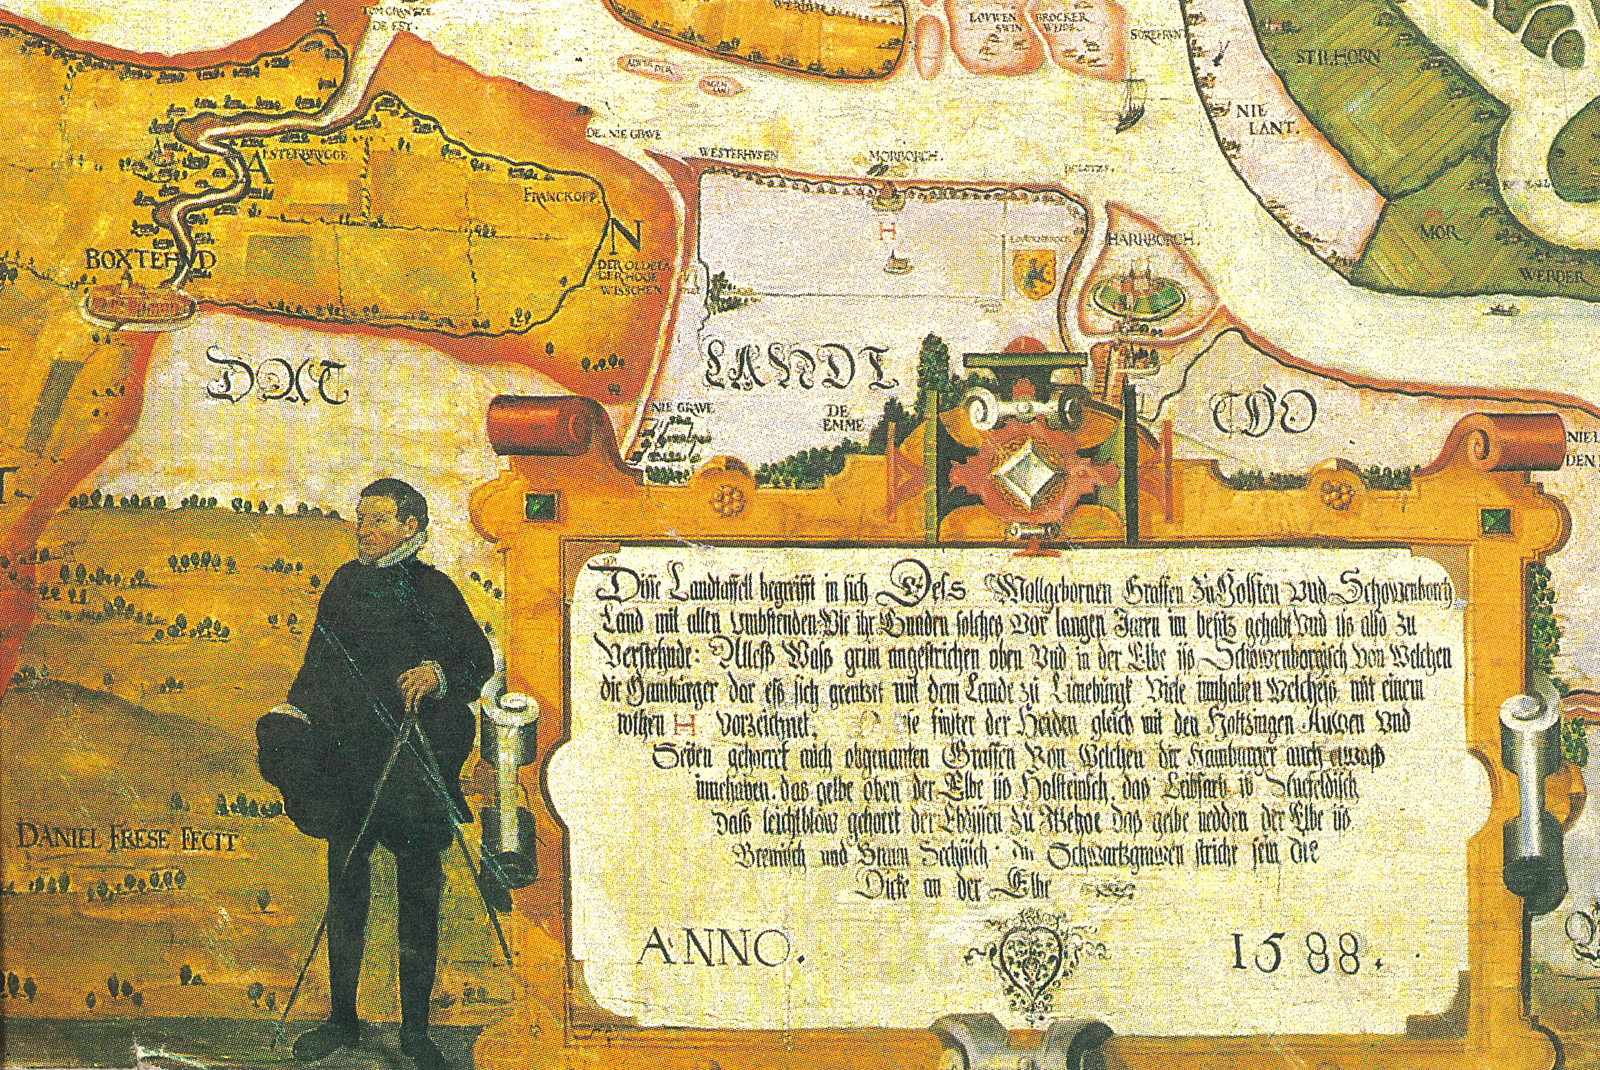 TOM CRANTZE
DE EST
LOUWEN
SWIN
BROCKER
WEIDE
STILHORN
NIE
LANT.
DE NIE GRAVE
WESTERHVSEN
MORBORCH.
ESTERBRVGGE
A
FRANCKOPP
N
BOXTEHVD
DER OLDE LA
DER HOGE
WISSCHEN
H
HARRBORCH.
MOR
WERDER
DAT
LANDT
THO
NIE GRAVE
DE
EMME
NIEL
DEN
Disse Landtaffell begrifft in sich Dess Wollgebornen Graffen Zu Holsten Vnd Schowenborch
Land mit allen Vmbstenden Wie ihr Gnaden solches Vor langen Jarn im besitz gehabt Vnd iis also zu
Verstehnde: Alless Wass grün angestrichen oben Vnd in der Elbe iis Schowenborgisch Von Welchen
die Hamburger dar ess sich grentzet mit dem Lande zu Luneburgk Viele innhaben Welcheis mit einem
rothen H Vorzeichnet. Die finster der Heiden gleich mit den Holtzingen Auwen Vnd
Seden gehoeret auch obgenanten Graffen Von Welchen die Hamburger auch etwass
innehaben, das gelbe oben der Elbe iis Holsteinsch, das Leibfarb is
Dass leichtblaw gehoert der Ebdissen Zu das gelbe nedden der Elbe iis
Bremisch und Brun die Schwartzgrawen striche sein die
Dicke an der Elbe
DANIEL FRESE FECIT
ANNO. 1588.